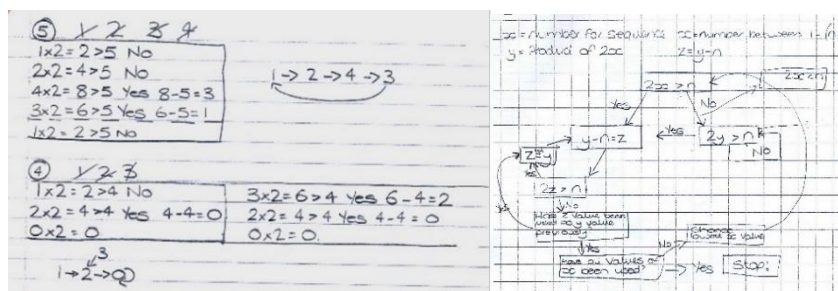 ⑤ 1 2 3 4
1x2=2>5 No
2x2=4>5 No
4x2=8>5 Yes 8-5=3
3x2=6>5 Yes 6-5=1
1x2=2>5 No
1→2→4→3
④ 1 2 3
1x2=2>4 No
2x2=4>4 Yes 4-4=0
0x2=0
3x2=6>4 Yes 6-4=2
2x2=4>4 Yes 4-4=0
0x2=0.
3
1→2→0
x=number for sequence x=number between 1-
y= Product of 2x z=y-n
2x>n
Yes No
y-n=z
Yes
2y>n
No
z=y
2z>n
No
Have z value been
used as y value
previously
Yes
No
Have all values of
x been used
Yes
Stop!